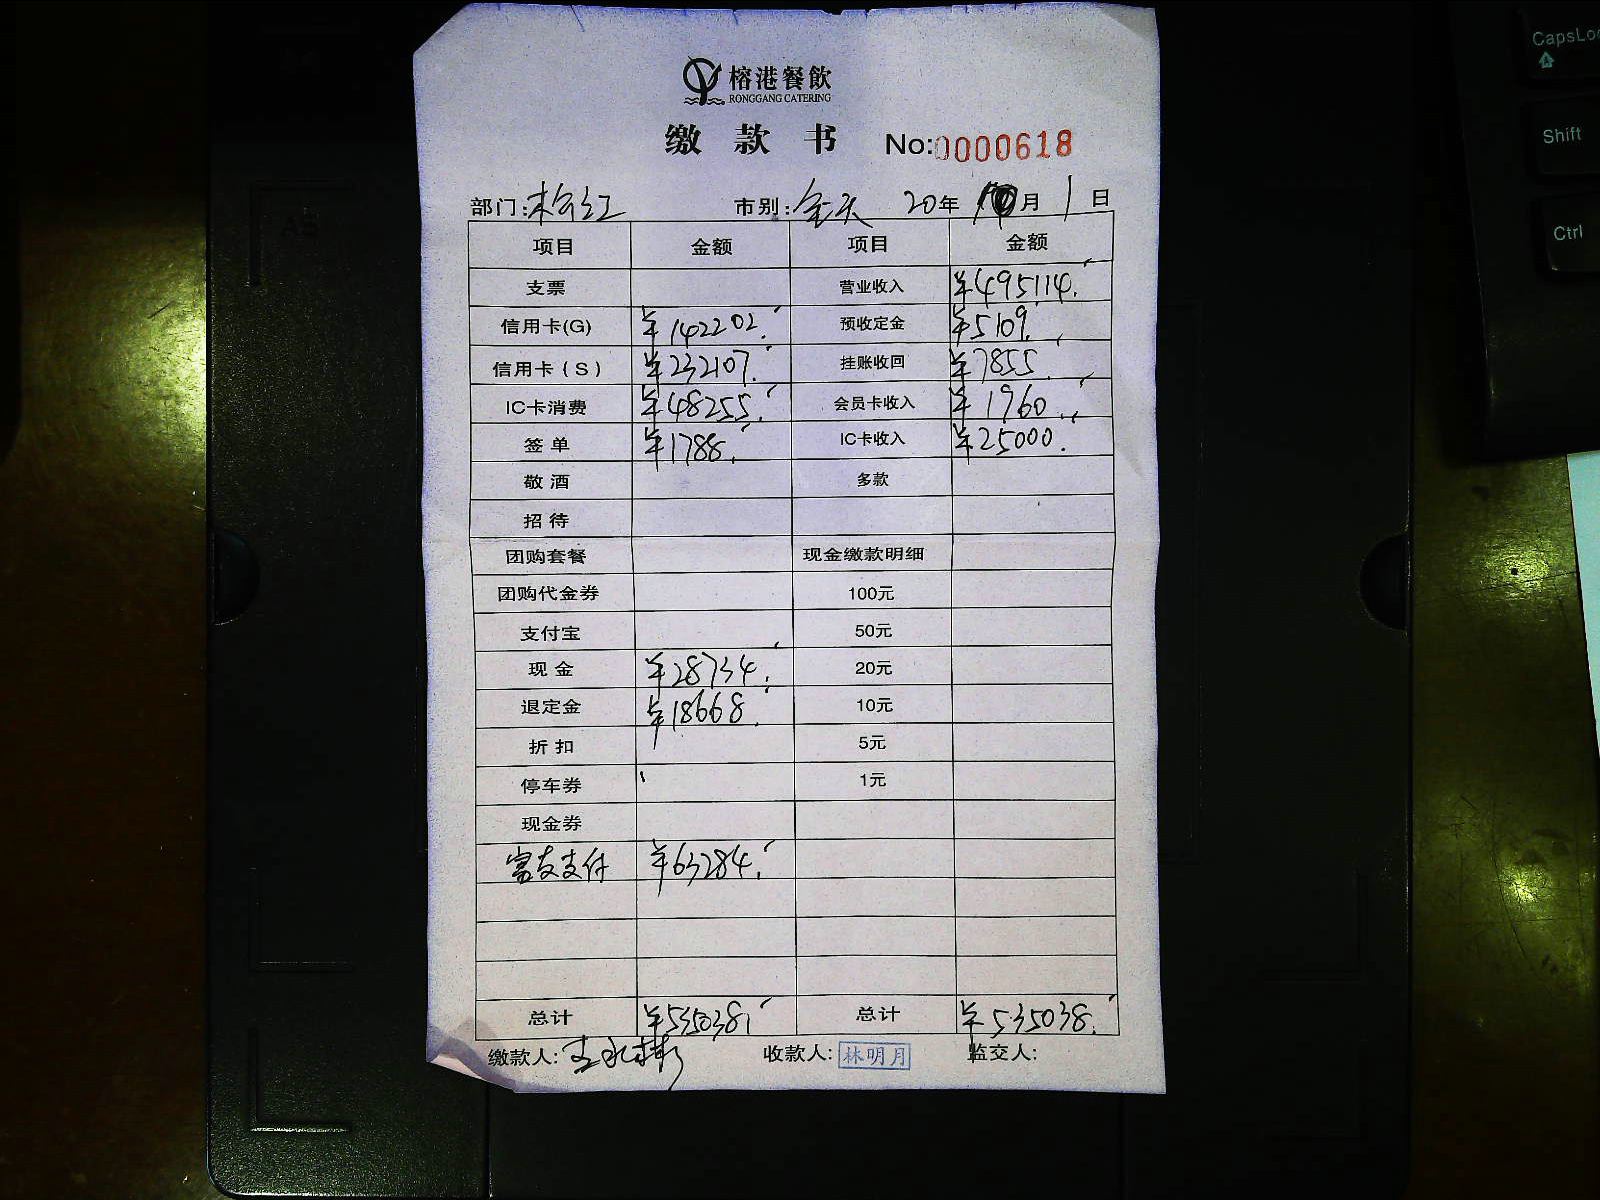 CapsLoc
Shift
Ctrl
A5
榕港餐飲
RONGGANG CATERING
缴款书 No:0000618
部门: 市别:全天 20年 月1日
项目 金额 项目 金额
支票 营业收入 ¥495114.
信用卡(G) ¥142202. 预收定金 ¥5109.
信用卡(S) ¥232107. 挂账收回 ¥7855.
IC卡消费 ¥48255. 会员卡收入 ¥1960.
签单 ¥1788. IC卡收入 ¥25000.
敬酒 多款
招待
团购套餐 现金缴款明细
团购代金券 100元
支付宝 50元
现金 ¥28734. 20元
退定金 ¥18668. 10元
折扣 5元
停车券 1元
现金券
富友支付 ¥63284.
总计 ¥535038. 总计 ¥535038.
缴款人: 收款人:林明月 监交人: